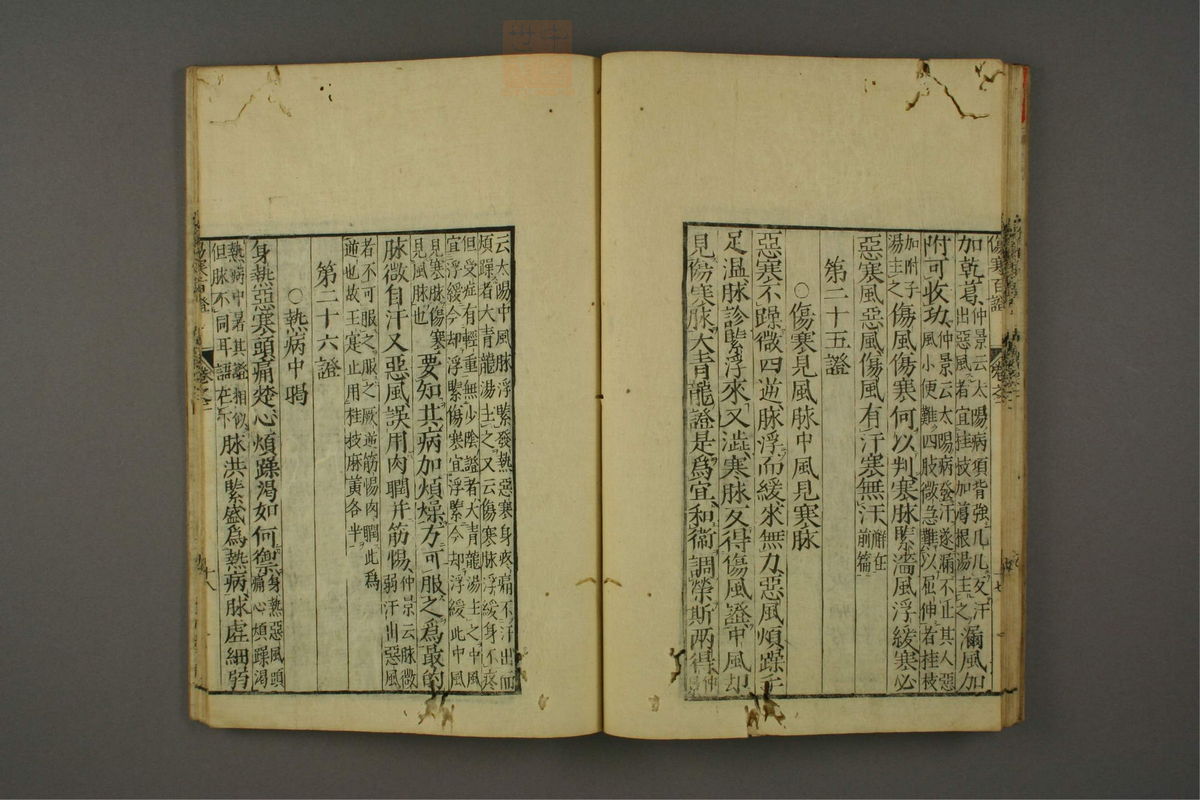 傷寒百證 卷之二 七
加乾葛仲景云太陽病項背強几几反汗出惡風者宜桂枝加葛根湯主之漏風加
附可收功仲景云太陽病發汗遂漏不止其人惡風小便難四肢微急難以屈伸者桂枝
加附子湯主之傷風傷寒何以判寒脉緊澁風浮緩寒必
惡寒風惡風傷風有汗寒無汗解在前篇
第二十五證
○傷寒見風脉中風見寒脉
惡寒不躁微四逆脉浮而緩來無力惡風煩躁手
足温脉診緊浮來又澁寒脉反得傷風證中風却
見傷寒脉大青龍證是爲宜和衞調榮斯兩得仲景
云太陽中風脉浮緊發熱惡寒身疼痛不汗出而煩躁者大青龍湯主之又云傷寒脉浮緩身不疼
但受症有輕重無少陰證者大青龍湯主之中風宜浮緩今却浮緊傷寒宜浮緊今却浮緩此中風
見寒脉傷寒見風脉也要知其病加煩燥方可服之爲最的
脉微自汗又惡風誤用肉瞤并筋惕仲景云脉微弱汗出惡風
者不可服之服之厥逆筋惕肉瞤此爲逆也故王寔止用桂枝麻黃各半
第二十六證
○熱病中暍
身熱惡寒頭痛楚心煩躁渴如何禦身熱惡風頭痛心煩躁渴
熱病中暑其證相似但脉不同耳語在下脉洪緊盛爲熱病脉虛細弱
傷寒百證 卷之二